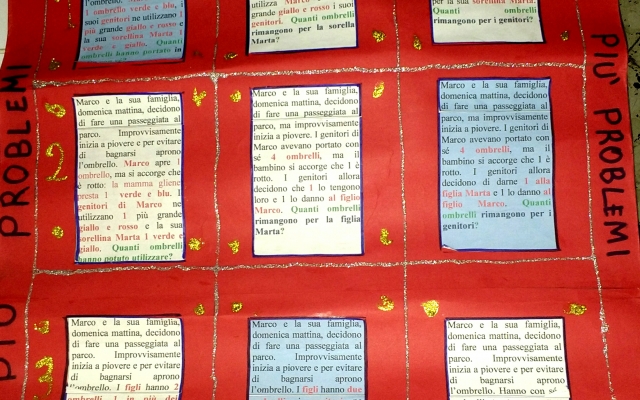 1 ombrello verde e blu, i
suoi genitori ne utilizzano 1
più grande giallo e rosso e
la sua sorellina Marta 1
verde e giallo. Quanti
ombrelli hanno portato in
grande giallo e rosso i suoi
genitori. Quanti ombrelli
rimangono per la sorella
Marta?
Quanti ombrelli
rimangono per i genitori?
PROBLEMI
PIU' PROBLEMI
2
Marco e la sua famiglia,
domenica mattina, decidono
di fare una passeggiata al
parco. Improvvisamente
inizia a piovere e per evitare
di bagnarsi aprono
l'ombrello. Marco apre 1
ombrello, ma si accorge che
è rotto: la mamma gliene
presta 1 verde e blu. I
genitori di Marco ne
utilizzano 1 più grande
giallo e rosso e la sua
sorellina Marta 1 verde e
giallo. Quanti ombrelli
hanno potuto utilizzare?
Marco e la sua famiglia,
domenica mattina, decidono
di fare una passeggiata al
parco, ma improvvisamente
inizia a piovere. I genitori di
Marco avevano portato con
sé 4 ombrelli, ma il
bambino si accorge che 1 è
rotto. I genitori allora
decidono che 1 lo tengono
loro e 1 lo danno al figlio
Marco. Quanti ombrelli
rimangono per la figlia
Marta?
Marco e la sua famiglia,
domenica mattina, decidono
di fare una passeggiata al
parco, ma improvvisamente
inizia a piovere. I genitori di
Marco avevano portato con
sé 4 ombrelli, ma il
bambino si accorge che 1 è
rotto. I genitori allora
decidono di darne 1 alla
figlia Marta e 1 lo danno al
figlio Marco. Quanti
ombrelli rimangono per i
genitori?
PIU
3
Marco e la sua famiglia,
domenica mattina, decidono
di fare una passeggiata al
parco. Improvvisamente
inizia a piovere e per evitare
di bagnarsi aprono
l'ombrello. I figli hanno 2
ombrelli, 1 in più dei
Marco e la sua famiglia,
domenica mattina, decidono
di fare una passeggiata al
parco. Improvvisamente
inizia a piovere e per evitare
di bagnarsi aprono
l'ombrello. I figli hanno due
Marco e la sua famiglia,
domenica mattina, decidono
di fare una passeggiata al
parco. Improvvisamente
inizia a piovere e per evitare
di bagnarsi aprono
l'ombrello. Hanno con sé